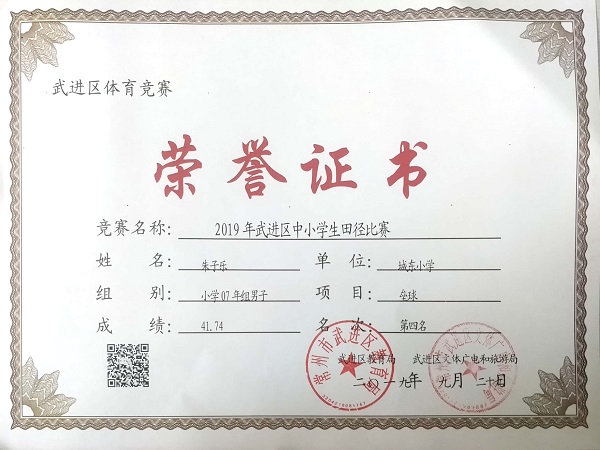 武进区体育竞赛
荣誉证书
竞赛名称: 2019年武进区中小学生田径比赛
姓 名: 朱子乐 单 位: 城东小学
组 别: 小学07年组男子 项 目: 垒球
成 绩: 41.74 名 次: 第四名
武进区教育局 武进区文体广电和旅游局
二〇一九年 九月 二十日
常州市武进区教育局